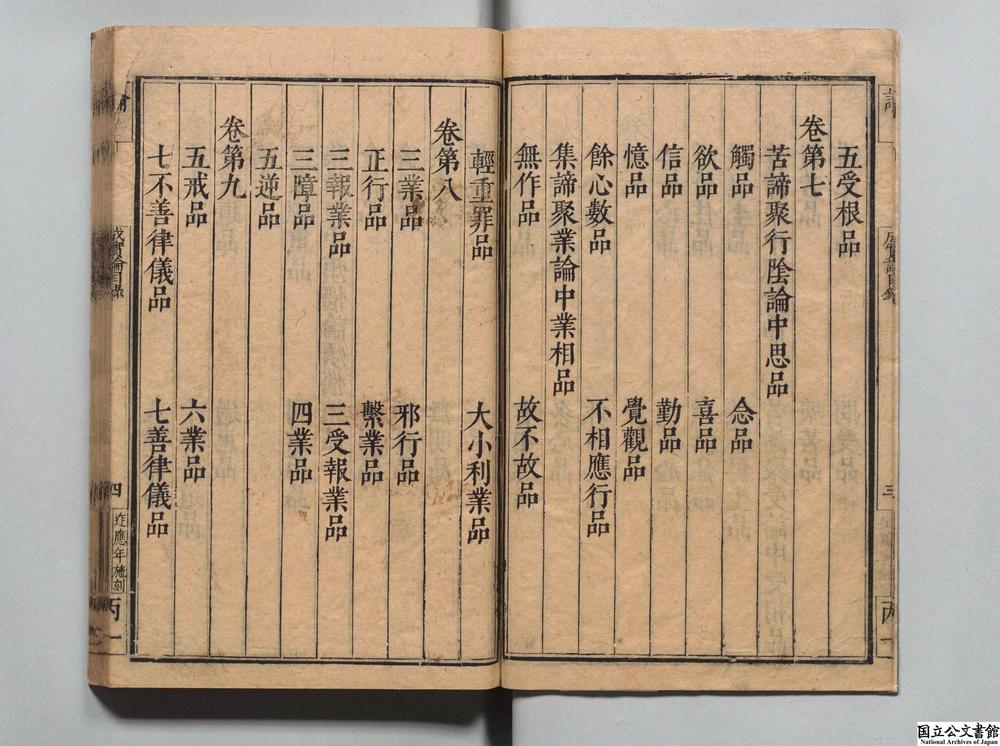 五受根品
卷第七
苦諦聚行陰論中思品
觸品 念品
欲品 喜品
信品 勤品
憶品 覺觀品
餘心數品 不相應行品
集諦聚業論中業相品
無作品 故不故品
輕重罪品 大小利業品
卷第八
三業品 邪行品
正行品 繫業品
三報業品 三受報業品
三障品 四業品
五逆品
卷第九
五戒品 六業品
七不善律儀品 七善律儀品
成實論目錄
四
丙一
国立公文書館
National Archives of Japan